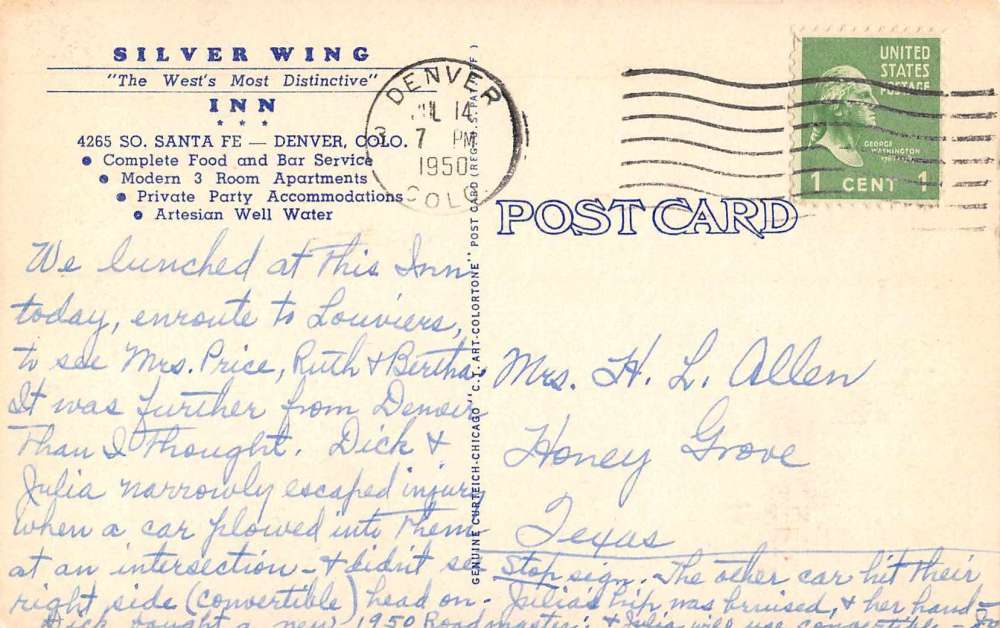 SILVER WING
"The West's Most Distinctive"
INN
* * *
4265 SO. SANTA FE — DENVER, COLO.
• Complete Food and Bar Service
• Modern 3 Room Apartments
• Private Party Accommodations
• Artesian Well Water
DENVER
JUL 14
7 PM
1950
COLO.
UNITED
STATES
POSTAGE
GEORGE
WASHINGTON
1 CENT 1
POST CARD
GENUINE CURTEICH-CHICAGO "C.T. ART-COLORTONE" POST CARD (REG. U.S. PAT. OFF.)
We lunched at this Inn
today, enroute to Louviers,
to see Mrs. Price, Ruth & Bertha.
It was further from Denver
Than I Thought. Dick &
Julia narrowly escaped injury
when a car plowed into Them
at an intersection - & didn't see
Stop sign. The other car hit Their
right side (convertible) head on. Julia's hip was bruised, & her hand -
Dick bought a new 1950 Roadmaster; & Julia will use convertible -
Mrs. H. L. Allen
Honey Grove
Texas